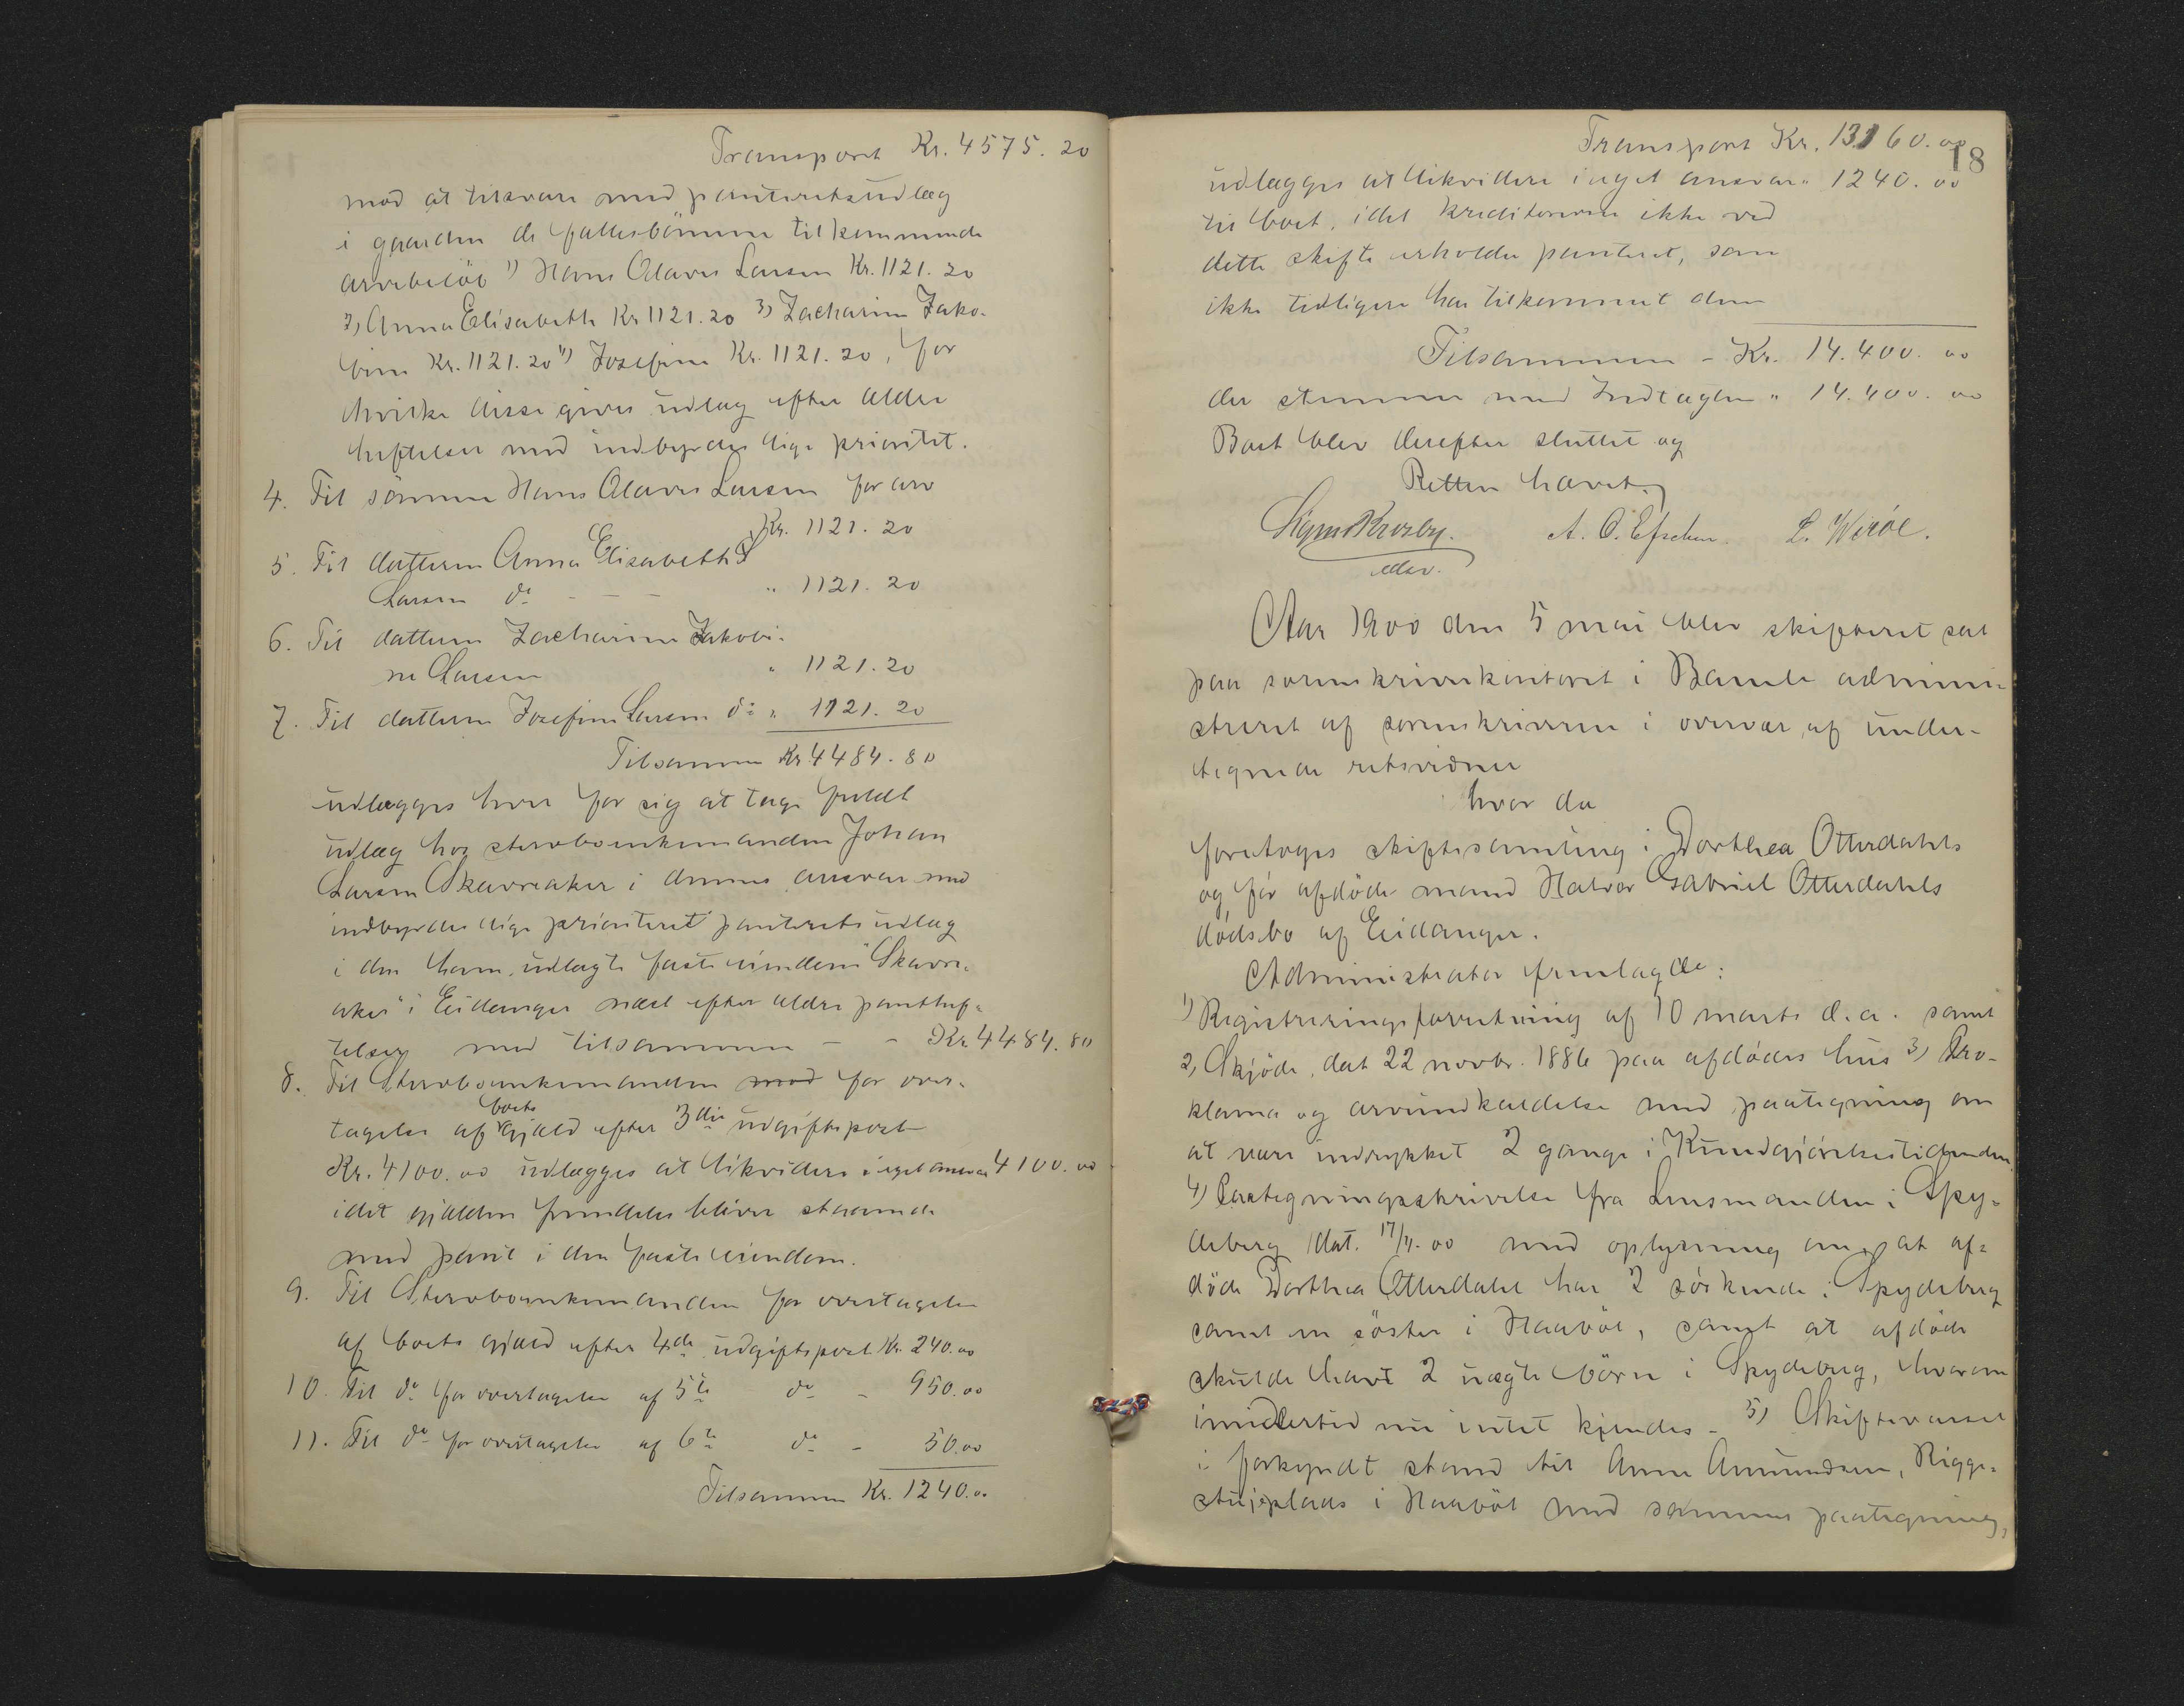 Transport Kr. 4575.20
mod at tilsvare med panteretsudlæg
i gaarden de fællesbørnene tilkommende
arvebeløb 1) Hans Olaves Larsen Kr. 1121.20
2) Anna Elisabeth Kr 1121.20 3) Zacharine Jako-
bine Kr. 1121.20 4) Josefine Kr. 1121.20, for
hvilke disse gives udlæg efter ældre
heftelser med indbyrdes lige prioritet.
4. Til sønnen Hans Olaves Larsen for arv
Kr. 1121.20
5. Til datteren Anna Elisabeth
Larsen do - - - " 1121.20
6. Til datteren Zacharine Jakobi-
ne Larsen " 1121.20
7. Til datteren Josefine Larsen do " 1121.20
Tilsammen Kr 4484.80
udlægges hver for sig at tage fuldt
udlæg hos sterbboenkemanden Johan
Larsen Skavraaker i dennes ansvar med
indbyrdes lige prioriteret panteretsudlæg
i den ham udlagte faste eiendom "Skavra-
aker" i Eidanger næst efter ældre panthef-
telser med tilsammen - - Kr 4484.80
8. Til Sterbboenkemanden mod for over-
tagelse af boets gjæld efter 3die udgiftspost
Kr. 4100.00 udlægges at likvidere i eget ansvar 4100.00
idet gjælden fremdeles bliver staaende
med pant i den faste eiendom.
9. Til Sterbboenkemanden for overtagelse
af boets gjæld efter 4de udgiftspost Kr. 240.00
10. Til do for overtagelse af 5te do - 950.00
11. Til do for overtagelse af 6te do - 50.00
Tilsammen Kr. 1240.00
Transport Kr. 13.160.00
18
udlægges at likvidere i eget ansvar " 1240.00
til boet, idet kreditorerne ikke ved
dette skifte erholder panteret, som
ikke tidligere har tilkommet dem
Tilsammen - Kr. 14.400.00
der stemmer med Indtægten " 14.400.00
Boet blev derefter sluttet og
Retten hævet.
A. O. L. Wirøe.
Aar 1900 den 5 mai blev skifteret sat
paa sorenskriverkontoret i Bamle admini-
streret af sorenskriveren i overvær af under-
tegnede retsvidner
hvor da
foretoges skiftesamling i Dorthea Otterdahls
og før afdøde mand Halvor Gabriel Otterdahls
dødsbo af Eidanger.
Administrator fremlagde:
1) Registreringsforretning af 10 marts d.a. samt
2) Skjøde, dat 22 novbr. 1886 paa afdødes hus 3) Pro-
klama og arveindkaldelse med paategning om
at være indrykket 2 gange i Kundgjørelsestidenden
4) Paategningsskrivelse fra Lensmanden i Spy-
deberg dat. 17/4.00 med oplysning om at af-
døde Dorthea Otterdahl har 2 søskende i Spydeberg
samt en søster i Haabøl, samt at afdøde
skulde havt 2 uægte børn i Spydeberg, hvorom
imidlertid nu intet kjendes - 5) Skiftevarsel
i forkyndt stand til Anne Amundsen, Rigge-
stujeplads i Haabøl med sammes paategning,